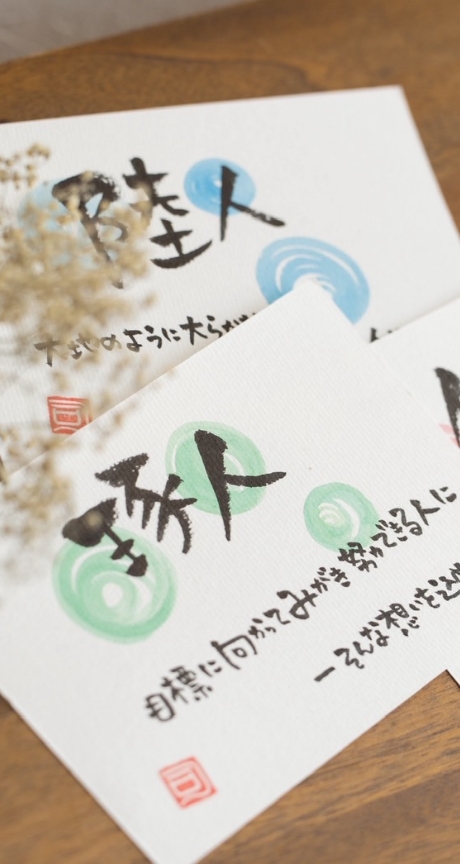 陸人
大地のように大らか
琢人
目標に向かってみがき努力できる人に
ーそんな想いを込